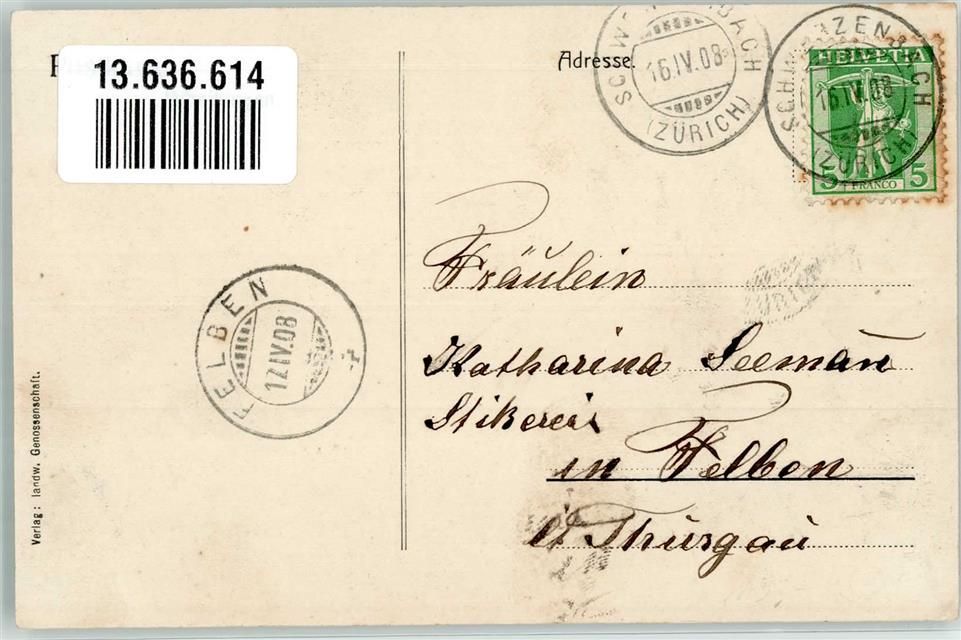 13.636.614
Adresse.
SCHWERZENBACH
16.IV.08
(ZÜRICH)
SCHWERZENBACH
16.IV.08
(ZÜRICH)
HELVETIA
5 FRANCO 5
Fräulein
Katharina Seemañ
Stikerei
in Felben
Ct Thurgau
FELBEN
17.IV.08
Verlag: landw. Genossenschaft.